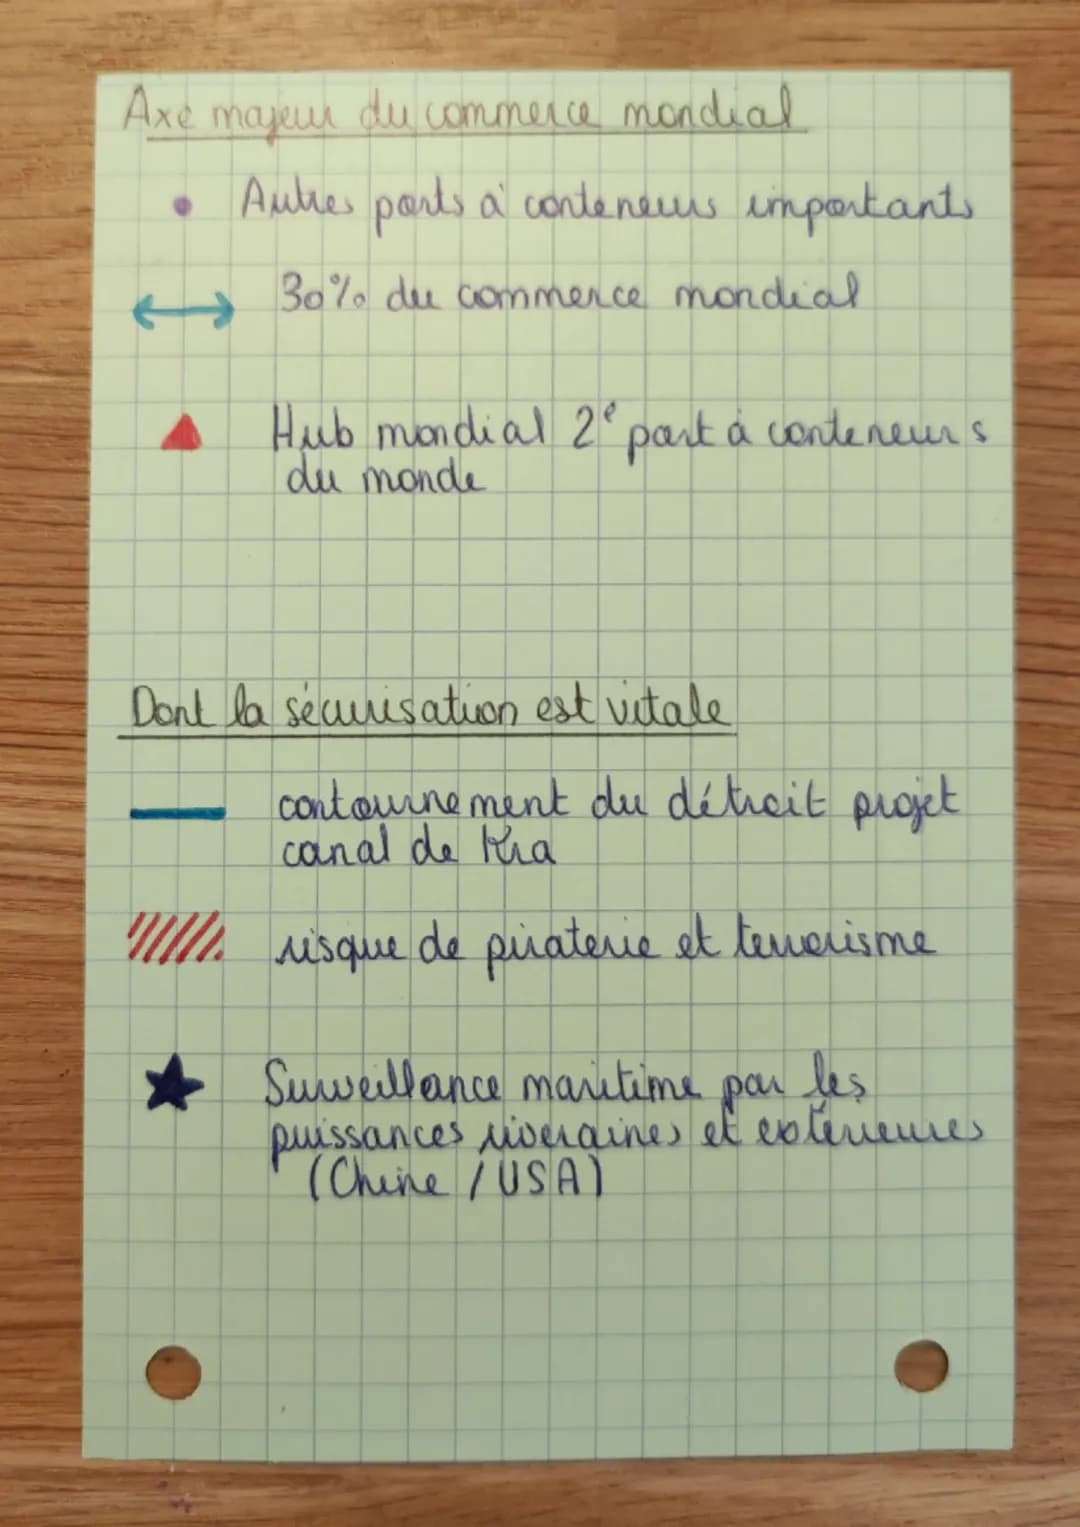 Axe majeur du commerce mondial
Autres ports à conteneurs importants
30% du commerce mondial
Hub mondial 2e port à conteneurs
du monde
Dont la sécurisation est vitale
contournement du détroit projet
canal de Kra
risque de piraterie et terrorisme
Surveillance maritime par les
puissances riveraines et extérieures
(Chine / USA)